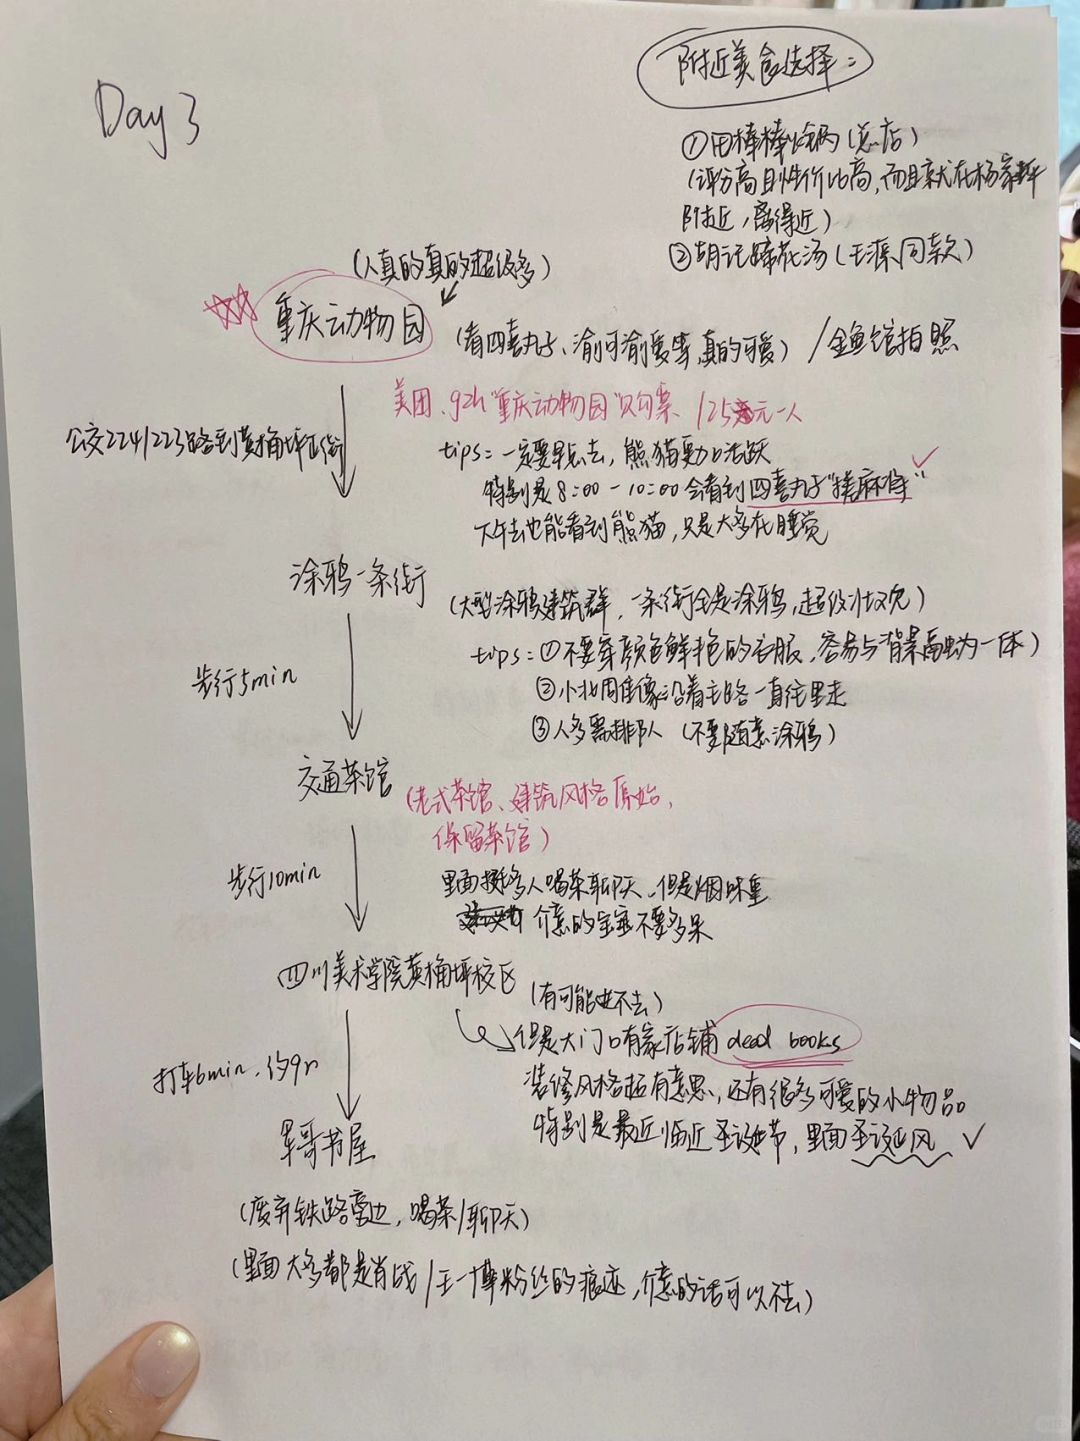 Day 3
附近美食选择：
①田棒棒火锅（总店）
（评分高且性价比高，而且就在杨家坪
附近，离得近）
②胡记蹄花汤（王源同款）
（人真的真的超级多）
重庆动物园
（看四喜丸子、渝可渝爱等，真的可爱）/金鱼馆拍照
美团、92h"重庆动物园"购票、/25元一人
公交224/223路到黄桷坪正街
tips：一定要早点去，熊猫更加活跃
特别是8:00-10:00会看到四喜丸子"搓麻将"
下午去也能看到熊猫，只是大多在睡觉
涂鸦一条街
（大型涂鸦建筑群，一条街全是涂鸦，超级壮观）
tips：①不要穿颜色鲜艳的衣服，容易与背景融为一体）
步行5min
②小北周佳像沿着主路一直往里走
③人多需排队（不要随意涂鸦）
交通茶馆
（老式茶馆、建筑风格原始，
保留茶馆）
步行10min
里面挺多人喝茶聊天、但是烟味重
介意的宝宝不要多呆
四川美术学院黄桷坪校区
（有可能进不去）
但是大门口有家店铺dead books
打车6min、约9r
装修风格挺有意思，还有很多可爱的小物品
特别是最近临近圣诞节，里面圣诞风
军哥书屋
（废弃铁路旁边，喝茶/聊天）
（里面大多都是肖战/王一博粉丝的痕迹，介意的话可以不去）